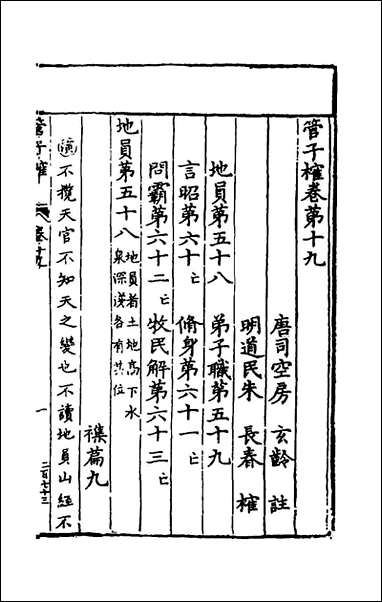 管子榷卷第十九
唐司空房 玄齡 註
明道民朱 長春 榷
地員第五十八 弟子職第五十九
言昭第六十亡 脩身第六十一亡
問霸第六十二亡 牧民解第六十三亡
襍篇九
地員第五十八 地員者土地高下水泉深淺各有其位
不攬天官不知天之變也不讀地員山經不
管子榷 卷十九 一 二百七十三